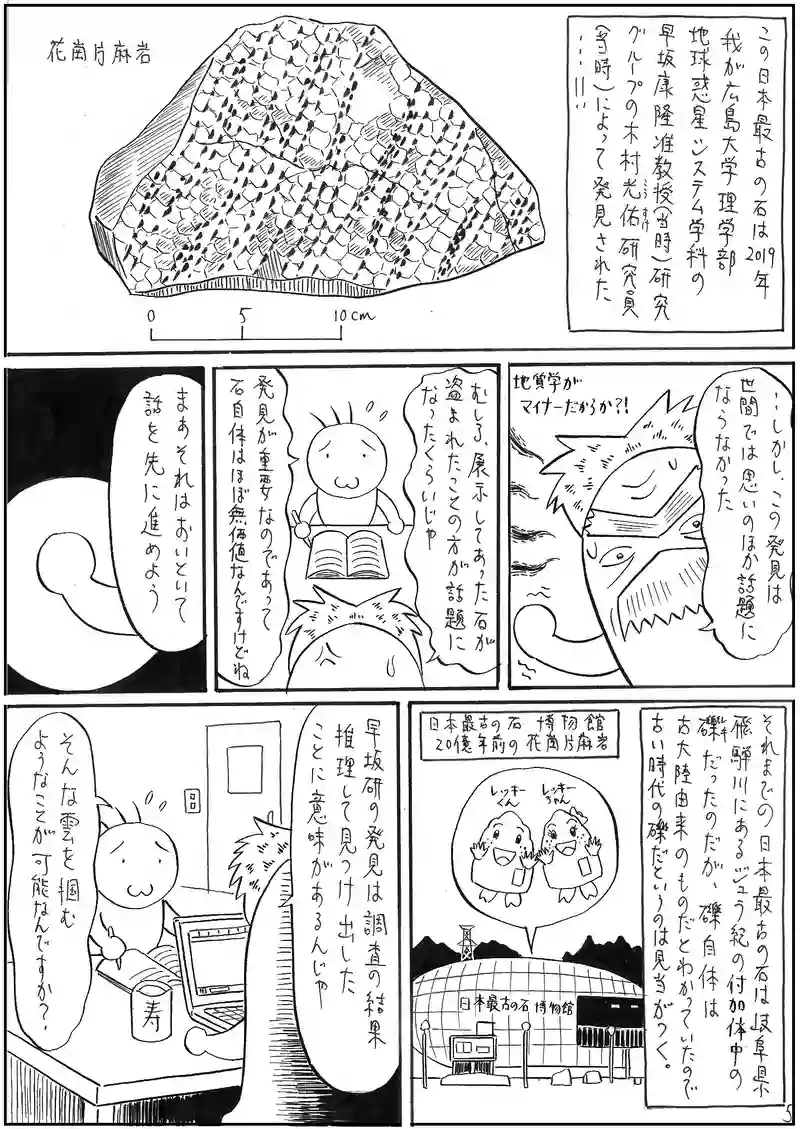 この日本最古の石は2019年
我が広島大学理学部
地球惑星システム学科の
早坂康隆准教授(当時)研究
グループの木村光佑研究員
こうすけ
(当時)によって発見された
…!!
花崗片麻岩
0 5 10cm
…しかし、この発見は
世間では思いのほか話題に
ならなかった
地質学が
マイナーだからか?!
むしろ、展示してあった石が
盗まれたことの方が話題に
なったくらいじゃ
発見が重要なのであって
石自体はほぼ無価値なんですけどね
まあそれはおいといて
話を先に進めよう
それまでの日本最古の石は岐阜県
飛騨川にあるジュラ紀の付加体中の
礫だったのだが、礫自体は
れき
古大陸由来のものだとわかっていたので
古い時代の礫だというのは見当がつく。
日本最古の石 博物館
20億年前の花崗片麻岩
レッキー
くん
レッキー
ちゃん
日本最古の石博物館
早坂研の発見は調査の結果
推理して見つけ出した
ことに意味があるんじゃ
そんな雲を掴む
ようなことが可能なんですか?
寿
5